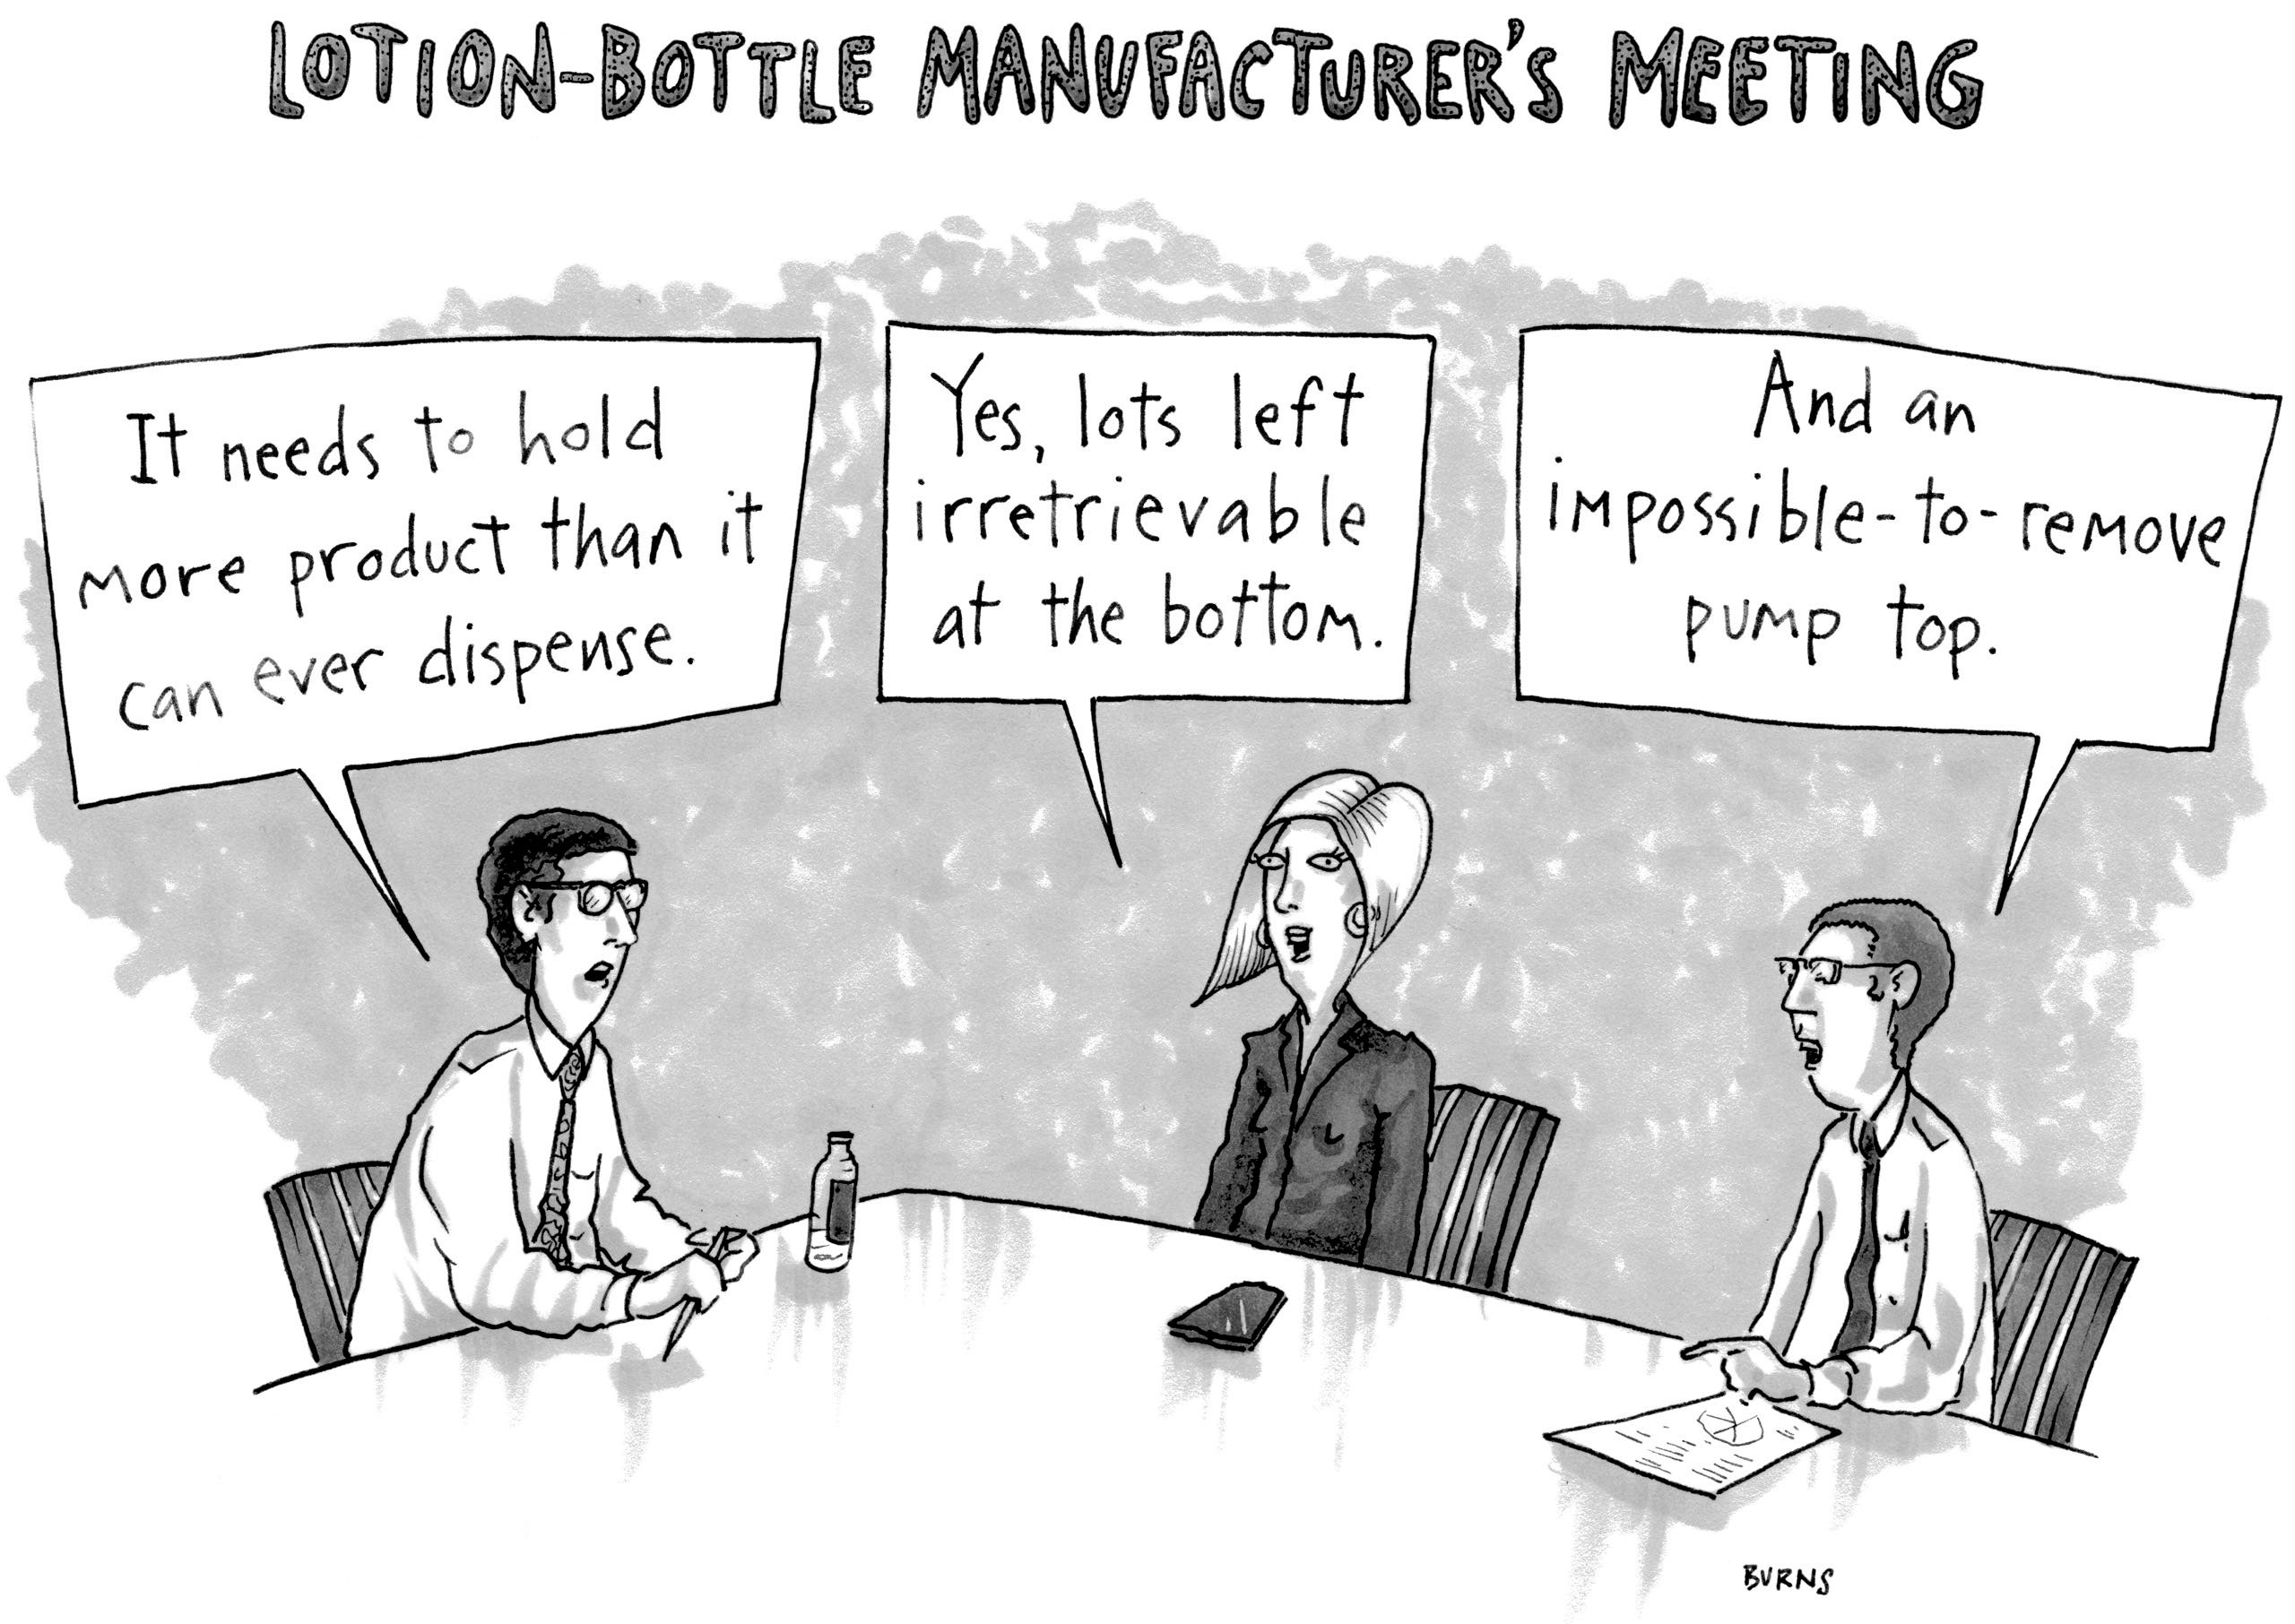 LOTION-BOTTLE MANUFACTURER'S MEETING
It needs to hold
more product than it
can ever dispense.
Yes, lots left
irretrievable
at the bottom.
And an
impossible-to-remove
pump top.
BURNS